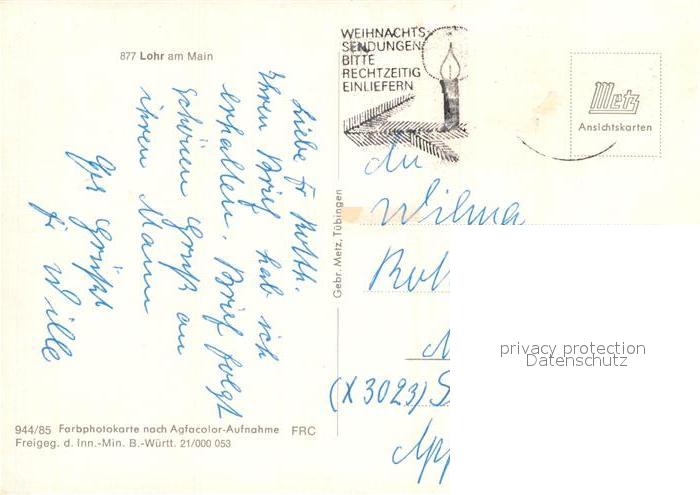 877 Lohr am Main
WEIHNACHTS-
SENDUNGEN
BITTE
RECHTZEITIG
EINLIEFERN
Metz
Ansichtskarten
Liebe Fr Roth.
Ihren Brief hab ich
erhalten. Brief folgt
schönen Gruß an
ihren Mann
Es Grüßt
fr Wille
Gebr. Metz, Tübingen
An
Wilma
(X3023)
privacy protection
Datenschutz
944/85 Farbphotokarte nach Agfacolor-Aufnahme FRC
Freigeg. d. Inn.-Min. B.-Württ. 21/000 053